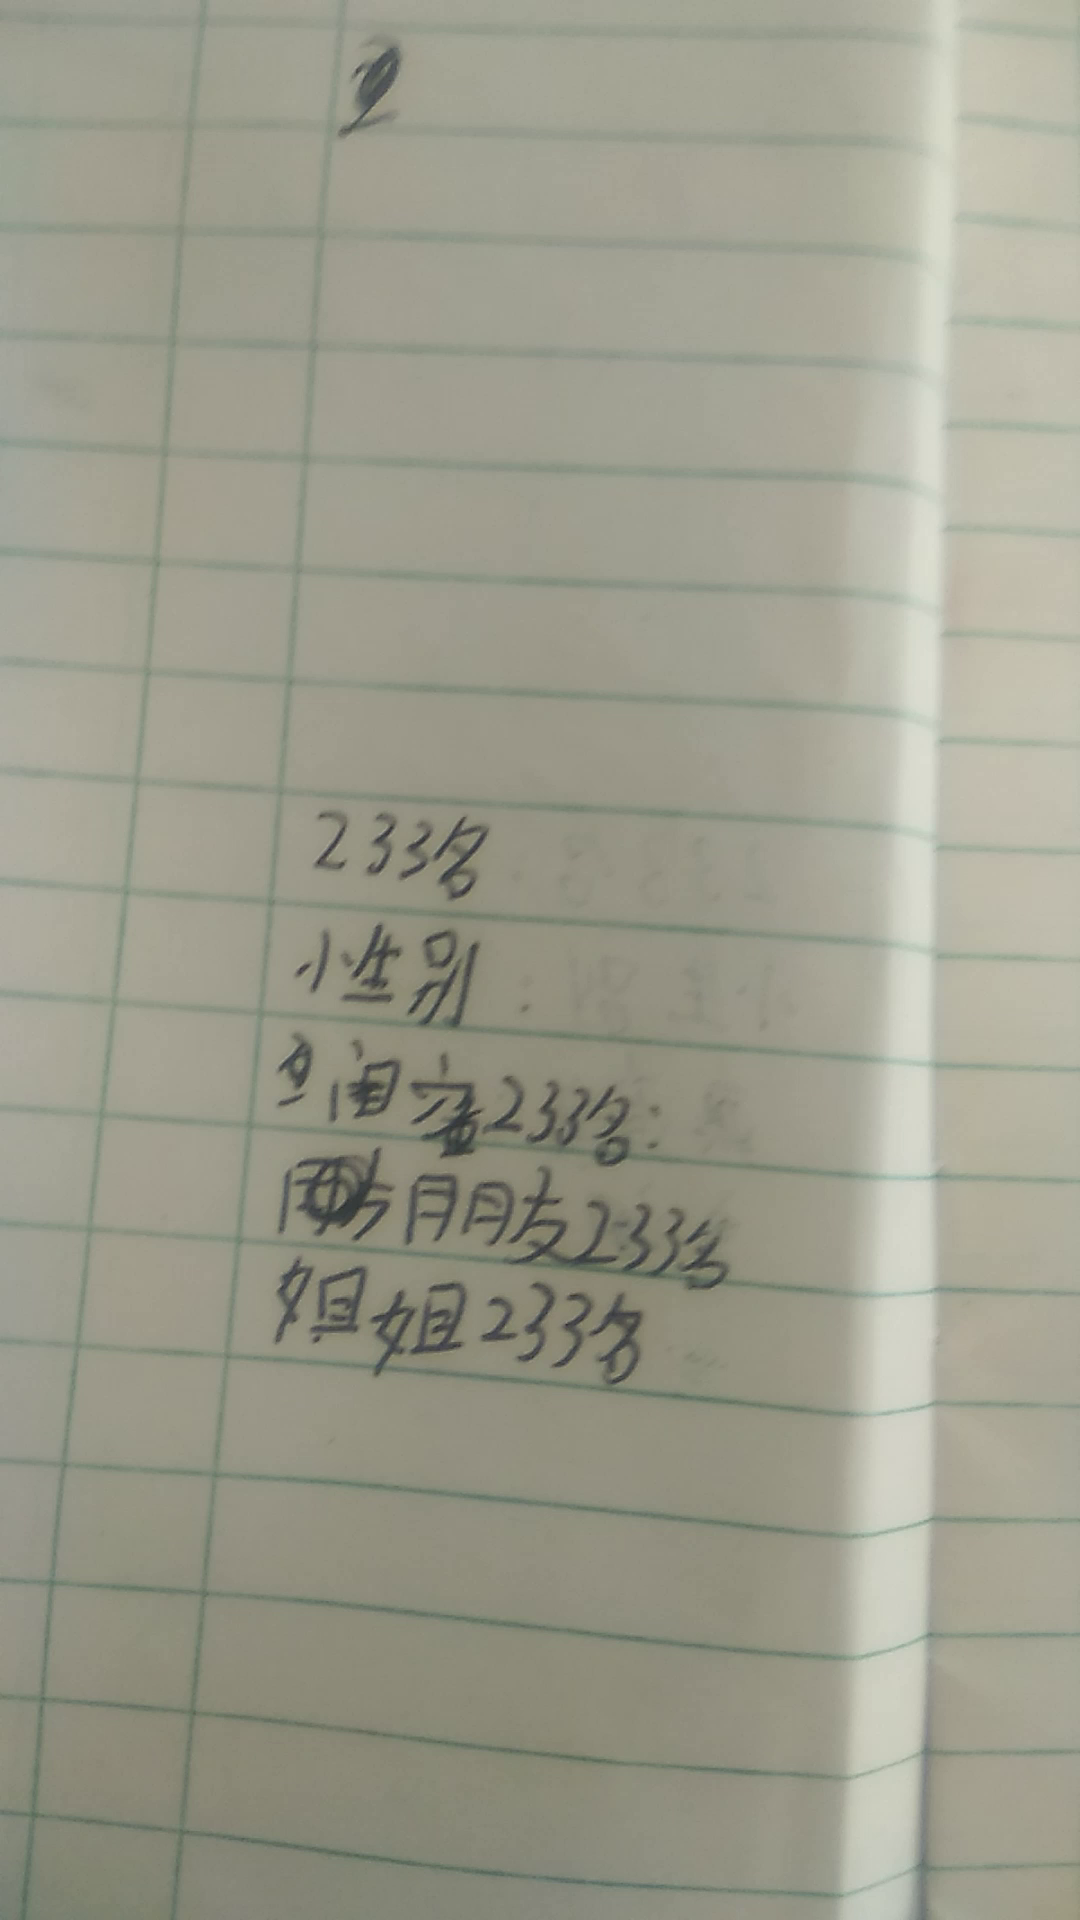 233名
小性别
闺密233名:
朋友233名
姐姐233名